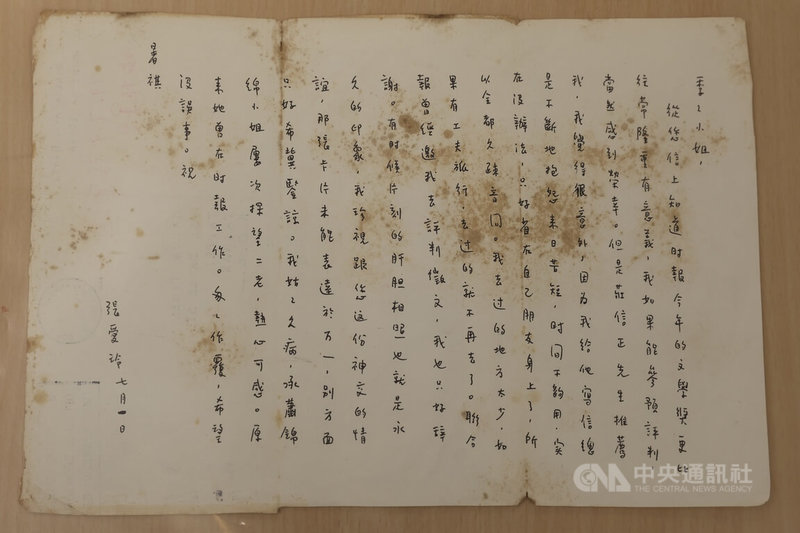 季季小姐，
從您信上知道时報今年的文學獎更比
往常隆重有意義，我如果能參預評判，
當然感到榮幸。但是莊信正先生推薦
我，我覺得很意外，因为我給他寫信總
是不斷地抱怨来日苦短，时间不夠用，实
在没辦法，只好省在自己朋友身上了，所
以全都久疎音问。我去过的地方太少，如
果有工夫旅行，去过的就不再去了。聯合
報曾經邀我去評判徵文，我也只好辞
謝。有时候片刻的肝胆相照也就是永
久的印象，我珍視跟您这份神交的情
誼，那張卡片未能表達於万一，别方面
只好希冀鑒諒。我姑姑久病，承蕭錦
綿小姐屢次探望二老，熱心可感。原
来她曾在时報工作。匆匆作覆，希望
没誤事。祝
暑祺
張愛玲 七月一日
CNA 中央通訊社
THE CENTRAL NEWS AGENCY